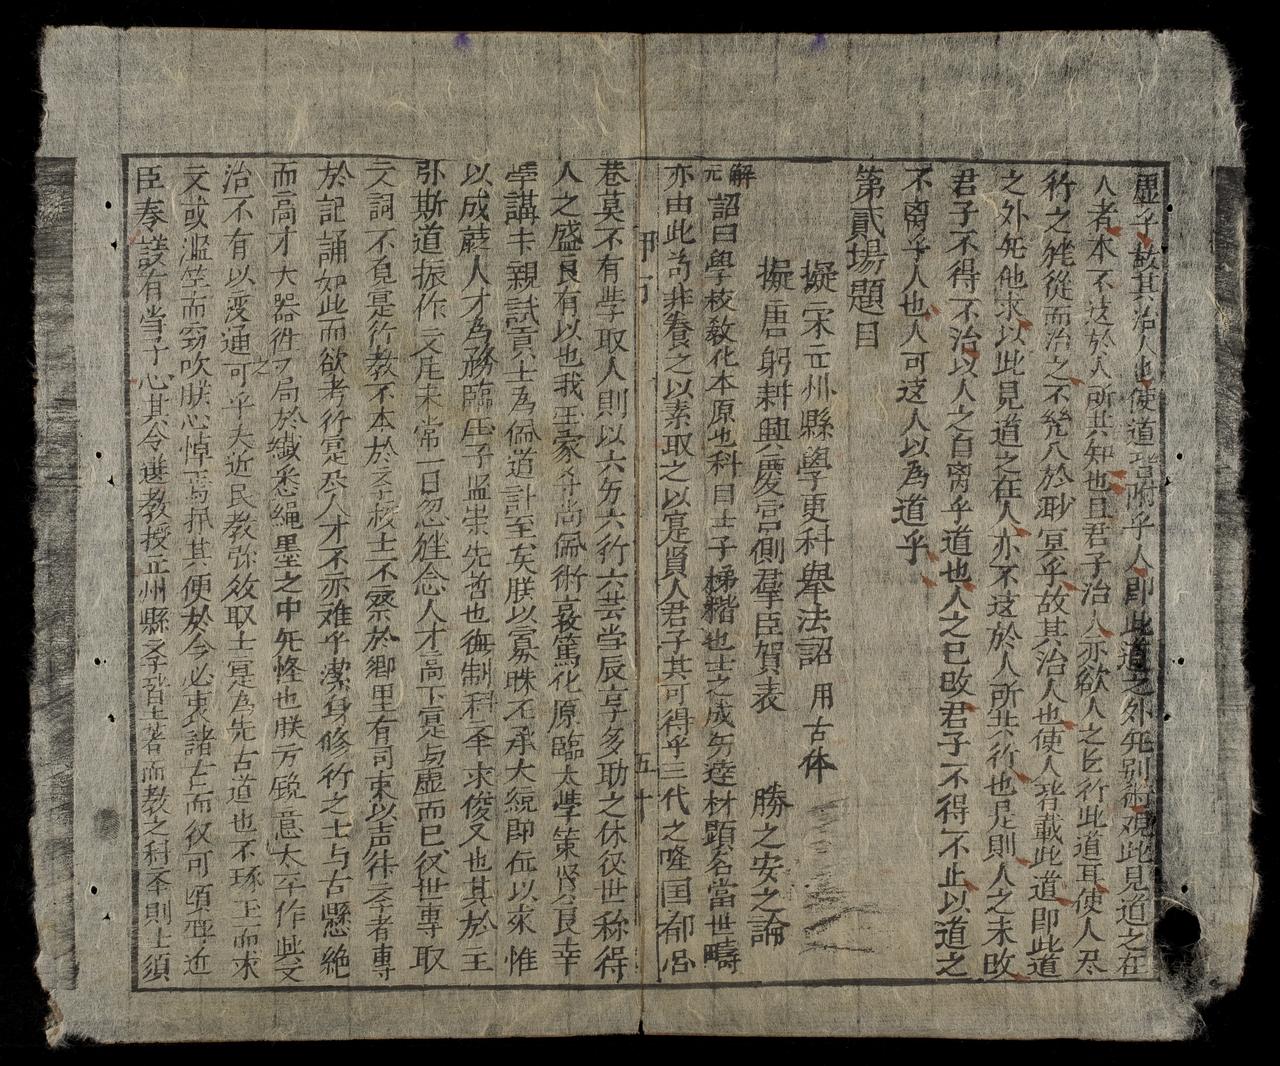 虛乎故其治人也使道皆附乎人即此道之外无别術观此見道之在
人者本不这於人所共知也且君子治人亦欲人之必行此道耳使人尽
行之雖從而治之不幾入於耿冥乎故其治人也使人皆載此道即此道
之外无他求以此見道之在人亦不这於人所共行也是則人之未改
君子不得不治以人之自离乎道也人之已改君子不得不止以道之
不离乎人也人可这人以為道乎
第貳場題目
擬宋立州縣學更科舉法詔 用古体
擬唐躬耕興慶宮側羣臣賀表 勝之安之論
解元 詔曰學校敎化本原也科目士子梯楷也士之成另達材顕名當世疇
亦由此苟非養之以素取之以寔賢人君子其可得乎三代之隆国都
巷莫不有学取人則以六另六行六芸当辰享多助之休役世称得
人之盛良有以也我王家肴尚儒術裒篤化原臨太學策贤良幸
学講卡親試貢士為儒道計至矣朕以寡昧丕承大統即位以來惟
以成蔽人才為務臨国子监崇先哲也復制科举求俊又也其於王
引斯道振作文庠未常一日忽雖念人才高下寔与虛而已役世專取
文詞不負寔行教不本於学校士不察於鄕里有司束以声律学者專
於記誦如此而欲考行寔及人才不亦难乎潔身修行之士与古懸絶
而高才大器徃々局於纎悉绳墨之中无恠也朕方鋭意太平作此文
治不有以变通之可乎大近民教弥敛取士寔為先古道也不琢玉而求
文或濫竽而窃吹朕心悼焉抳其便於今必衷諸古而役可頤並近
臣奏議有当予心其令选教授立州縣学皆土著而教之科举則士須
五十